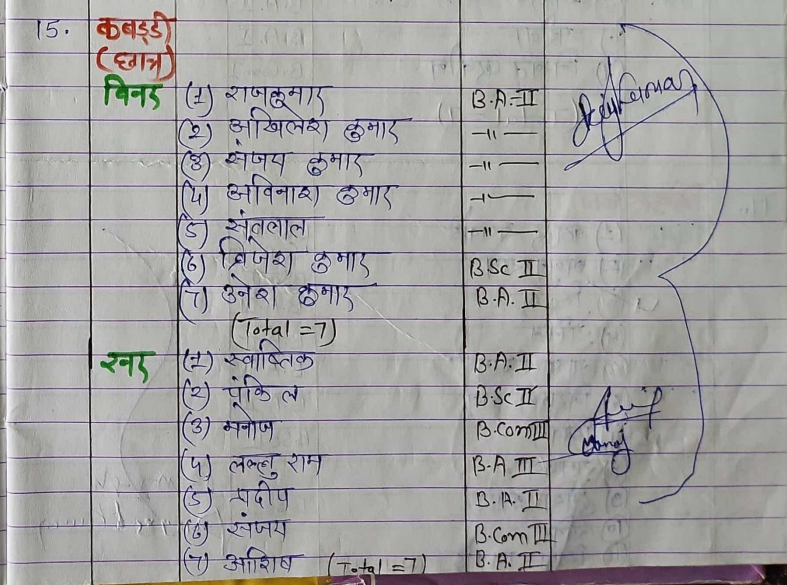 15. कबड्डी
(छात्र)
विनर (1) राजकुमार B.A.-II Rajkumar
(2) अखिलेश कुमार -11-
(3) संजय कुमार -11-
(4) अविनाश कुमार -11-
(5) संतलाल -11-
(6) ब्रिजेश कुमार B.Sc II
(7) उमेश कुमार B.A. II
(Total = 7)
रनर (1) स्वास्तिक B.A. II
(2) पंकिल B.Sc II
(3) मनोज B.Com III Manoj
(4) लल्लु राम B.A III
(5) प्रदीप B.A. II
(6) संजय B.Com III
(7) आशिष (Total = 7) B.A. II